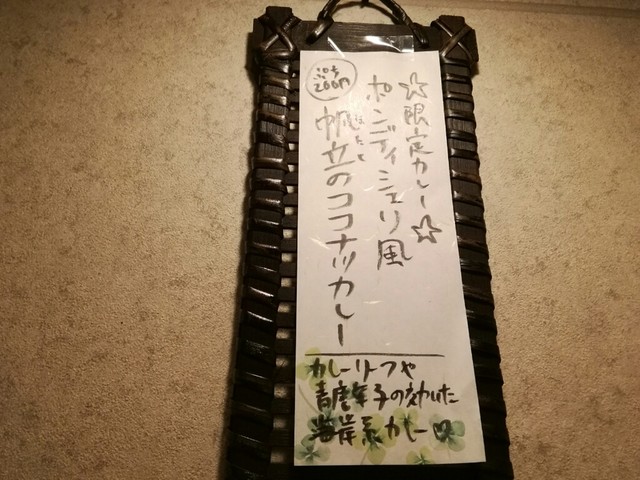 ☆限定カレー☆
ポンディシェリ風
帆立のココナッツカレー
ほたて
200円
カレーリーフや
青唐辛子の効いた
海岸系カレー♡